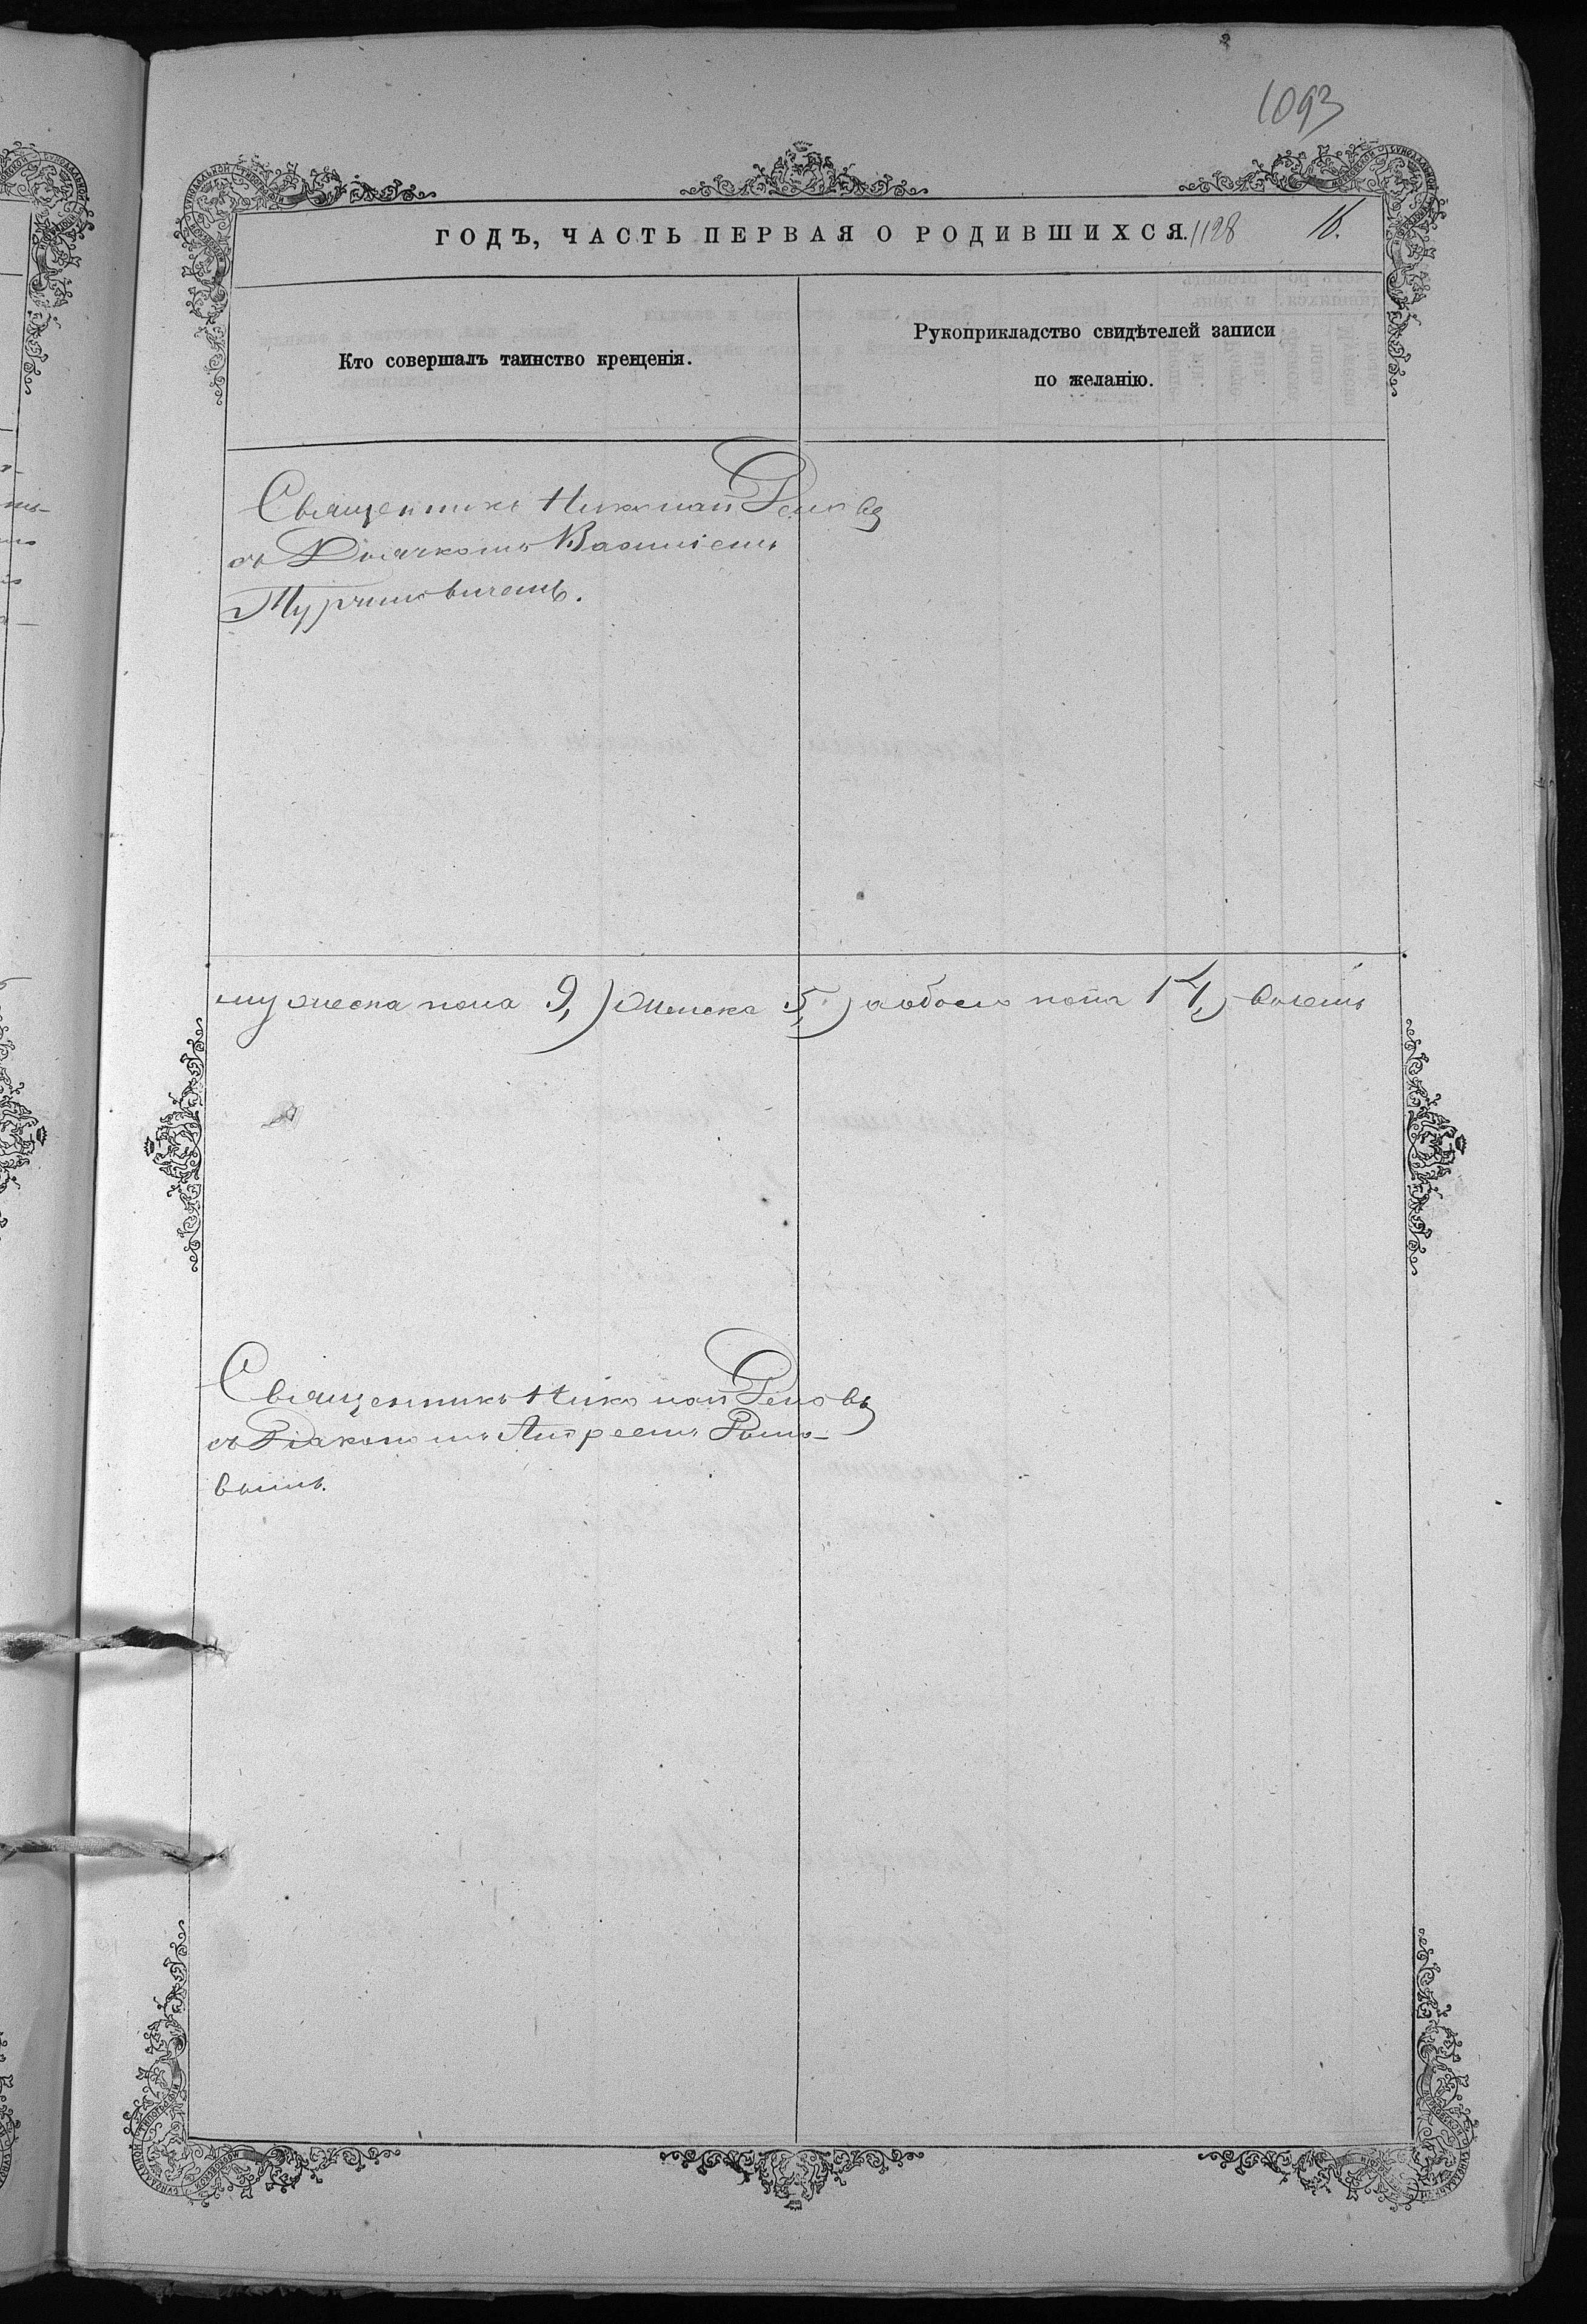 1093
ГОДЪ, ЧАСТЬ ПЕРВАЯ О РОДИВШИХСЯ. 1128 16.
Кто совершалъ таинство крещенія.
Рукоприкладство свидѣтелей записи
по желанію.
Священникъ Николай
съ Дьячкомъ Василіемъ
мужеска пола 9, женска 5, а обоего пола 14,
Священникъ Николай
съ Діакономъ Андреемъ
вымъ.